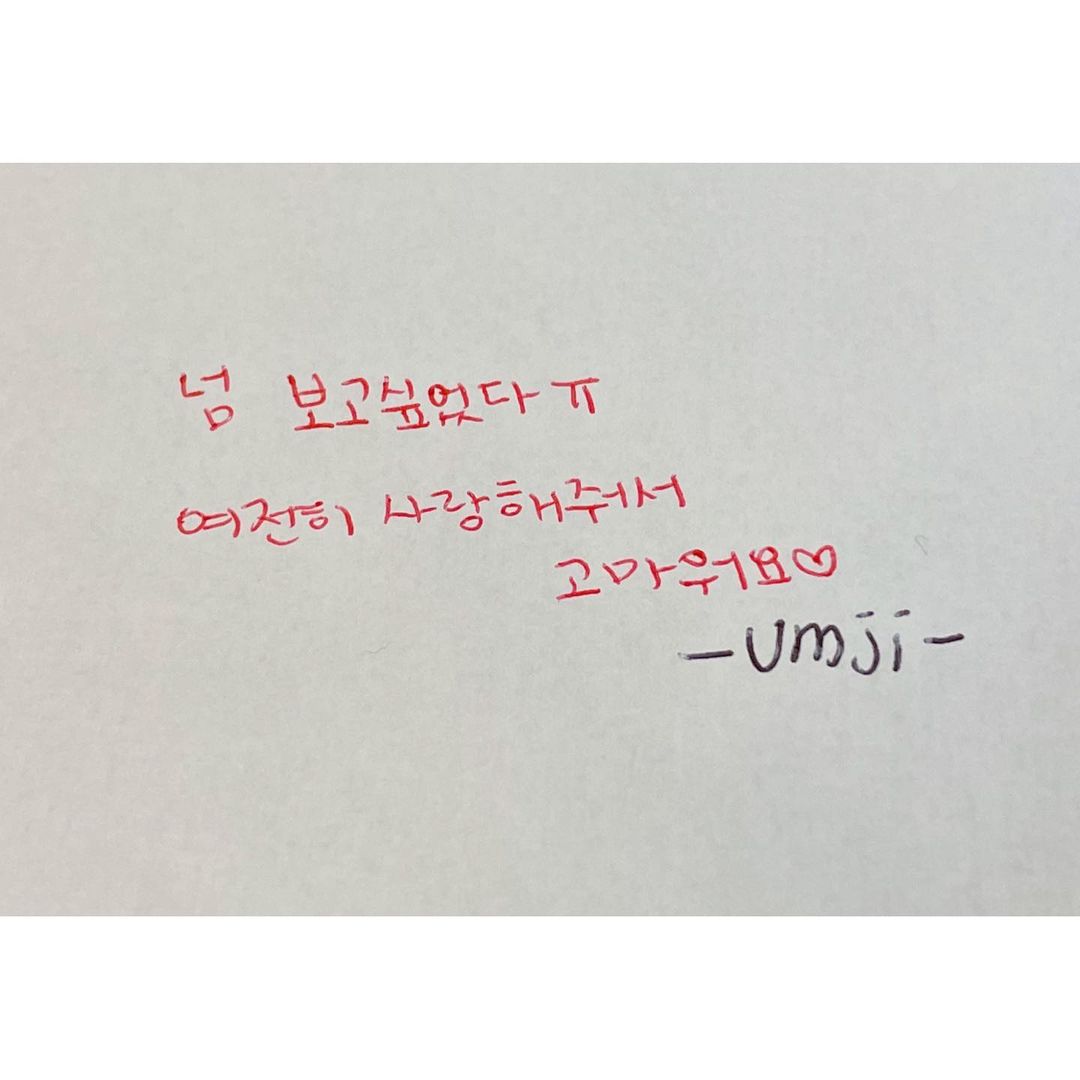 넘 보고싶었다 ㅠ
여전히 사랑해줘서
고마워요♡
-umji-